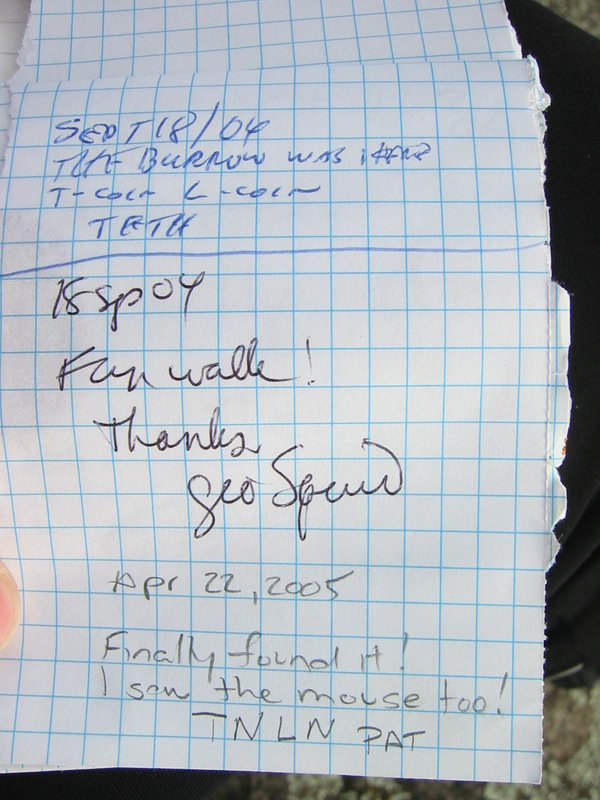 SEPT 18/04
THE BURROW WAS HERE
T-COIN L-COIN
TFTH
18 Sp 04
Fun walk!
Thanks
GeoSquid
Apr 22, 2005
Finally found it!
I saw the mouse too!
TNLN PAT